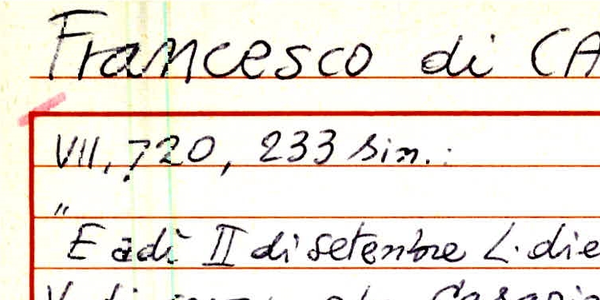 Francesco di CA
VII, 720, 233 sin.:
"
E adì II di setenbre L. die